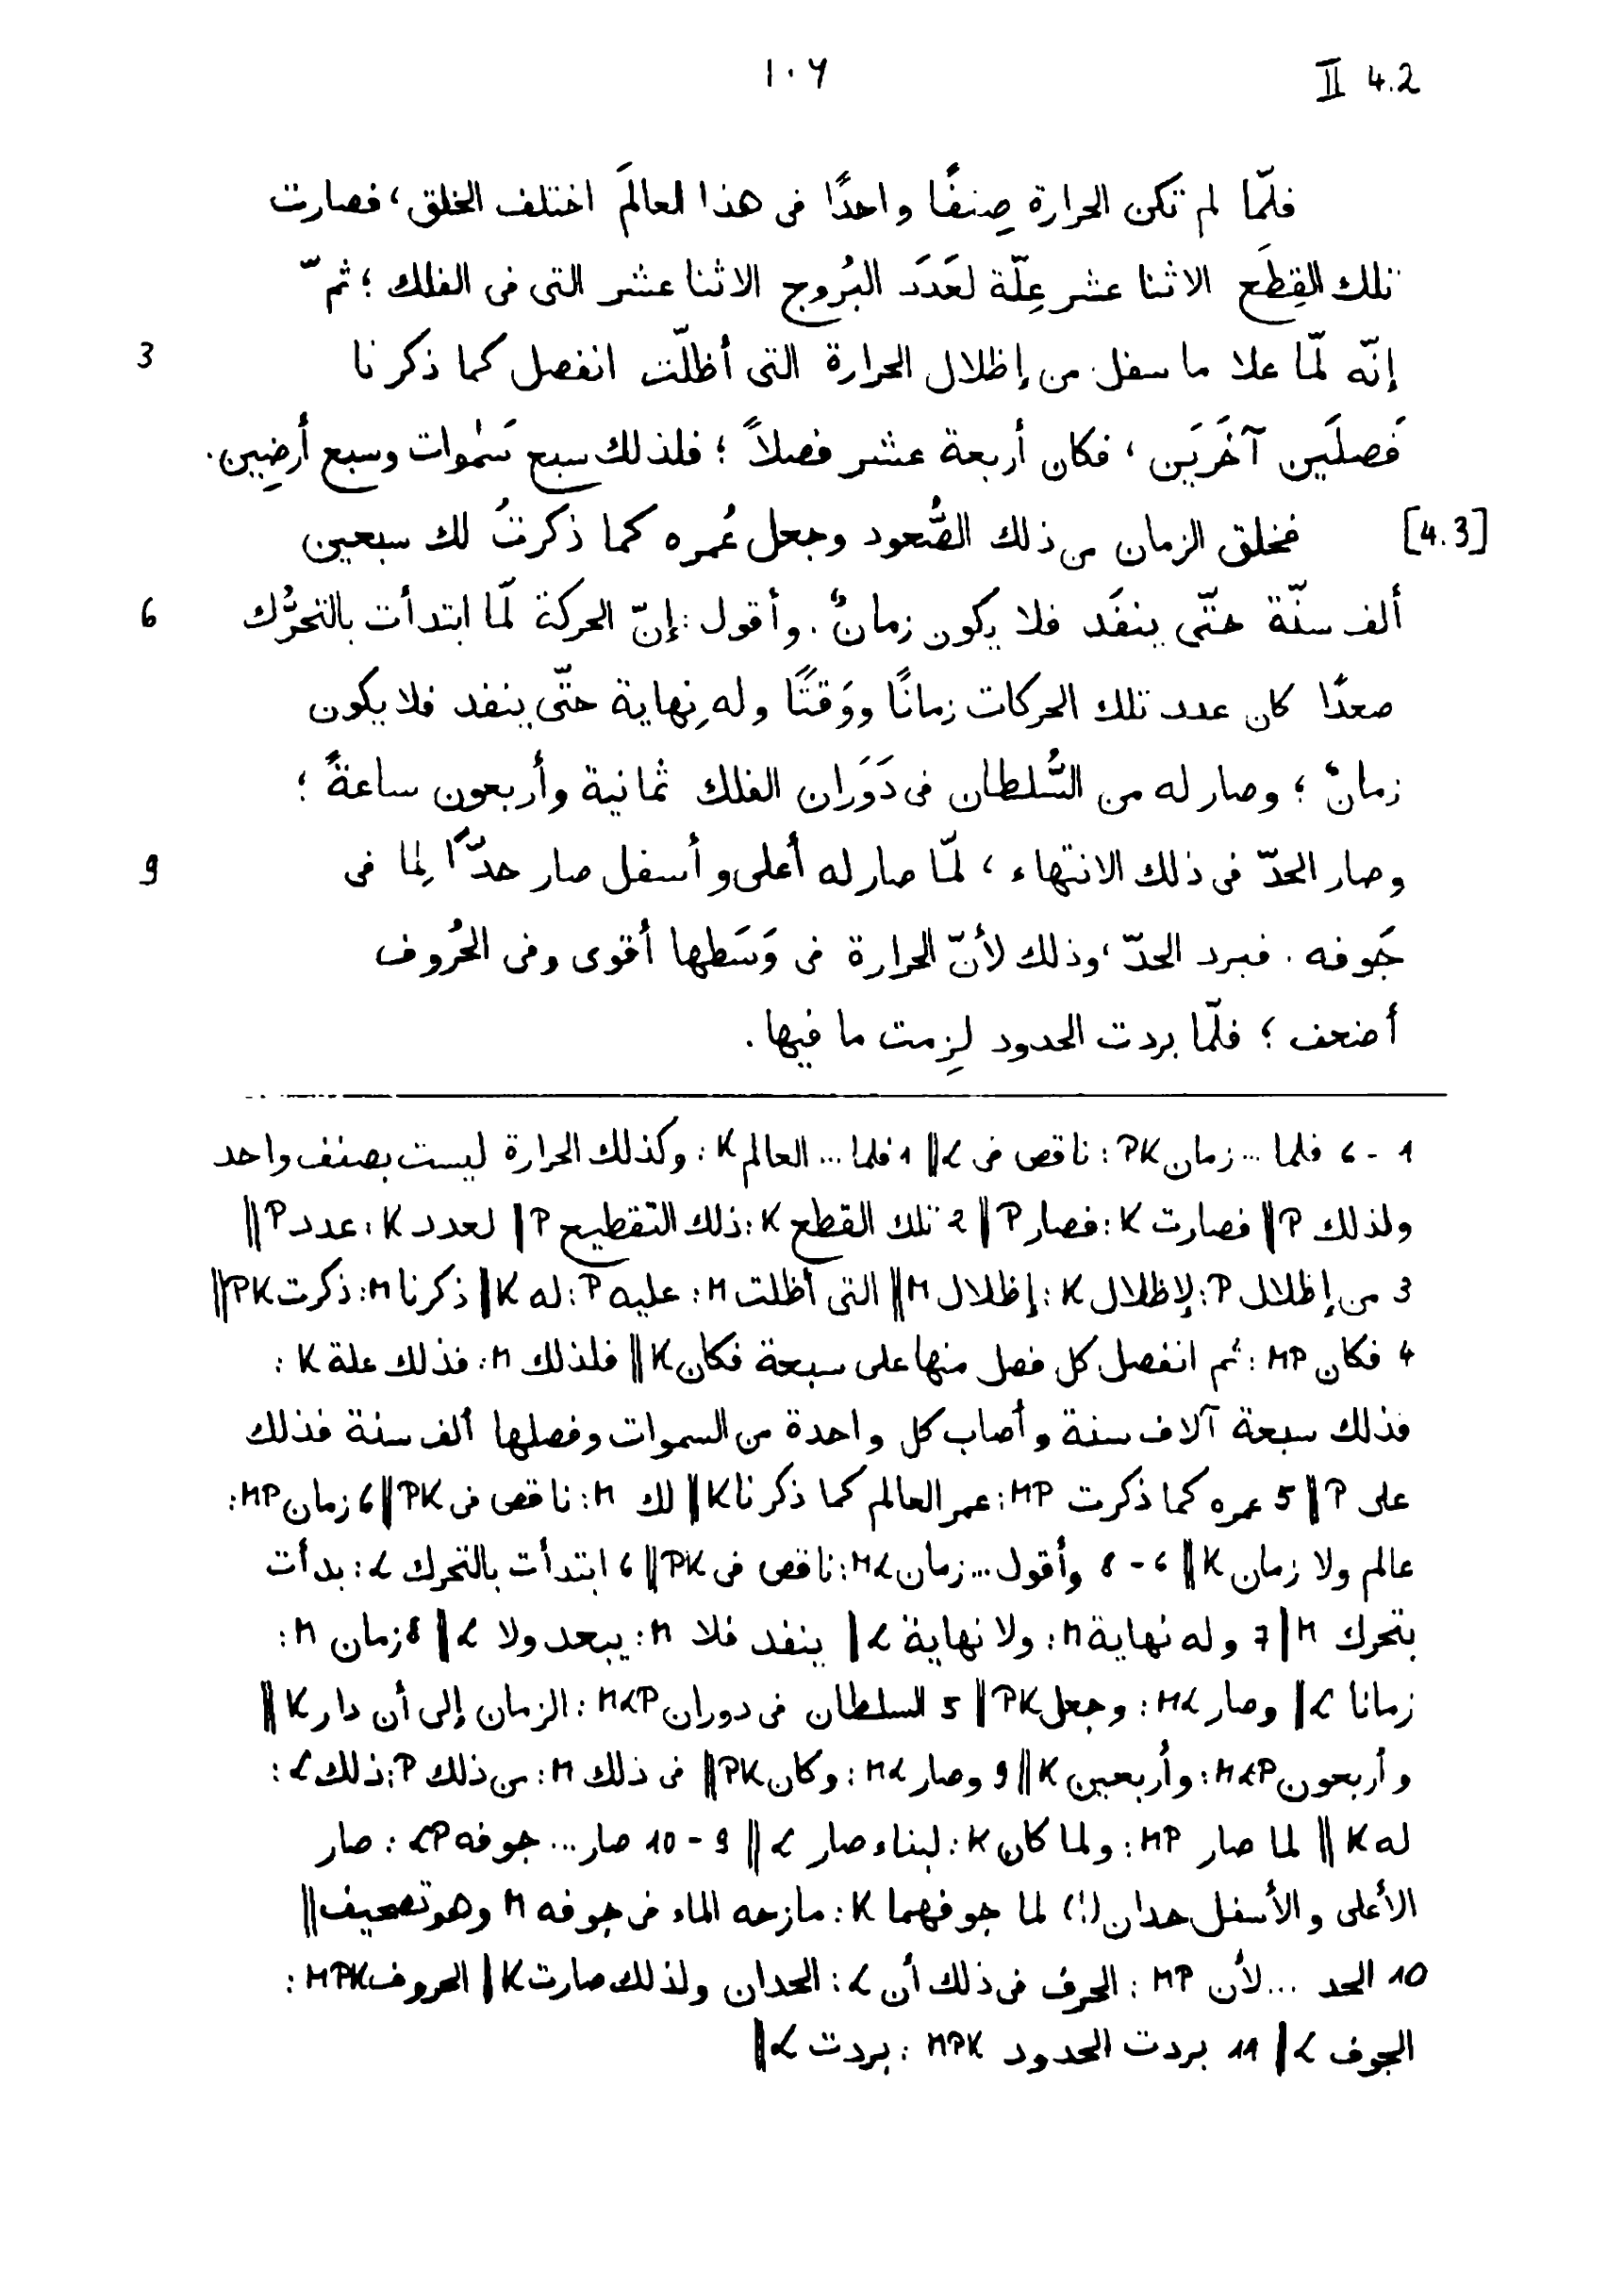 ١٠٦ II 4.2
فلمّا لم تكن الحرارة صِنفًا واحدًا فى هذا العالَم اختلف الخلق، فصارت
تلك القِطَع الاثنا عشر عِلّة لعَدَدَ البُروج الاثنا عشر التى فى الفلك؛ ثمّ
3 إنّه لمّا علا ما سفل من إظلال الحرارة التى أظلّت انفصل كما ذكرنا
فَصلَين آخَرَين، فكان أربعة عشر فصلاً؛ فلذلك سبع سَمٰوات وسبع أرضِين.
[4.3] فخلق الزمان من ذلك الصُّعود وجعل عُمره كما ذكرتُ لك سبعين
6 ألف سنّة حتّى ينفَد فلا يكون زمانٌ. وأقول: إنّ الحركة لمّا ابتدأت بالتحرُّك
صعدًا كان عدد تلك الحركات زمانًا ووَقتًا وله نِهاية حتّى ينفد فلا يكون
زمانٌ؛ وصار له من السُّلطان فى دَوَران الفلك ثمانية وأربعون ساعةً؛
9 وصار الحدّ فى ذلك الانتهاء، لمّا صار له أعلى وأسفل صار حدًّا لِما فى
جَوفه. فبرد الحدّ، وذلك لأنّ الحرارة فى وَسَطها أقوى وفى الحُروف
أضعف؛ فلمّا بردت الحدود لزِمت ما فيها.
1 - 6 فلما ... زمان PK: ناقص فى L || 1 فلما ... العالم K: وكذلك الحرارة ليست بصنف واحد
ولذلك P || فصارت K: فصار P || 2 تلك القطع K: ذلك التقطيع P || لعدد K: عدد P ||
3 من إظلال P: لإظلال K: إظلال M || التى أظلت M: عليه P: له K || ذكرنا M: ذكرت PK ||
4 فكان MP: ثم انفصل كل فصل منها على سبعة فكان K || فلذلك M: فذلك علة K:
فذلك سبعة آلاف سنة وأصاب كل واحدة من السموات وفصلها ألف سنة فذلك
على P || 5 عمره كما ذكرت MP: عمر العالم كما ذكرنا K || لك M: ناقص فى PK || 6 زمان MP:
عالم ولا زمان K || 6 - 8 وأقول ... زمان ML: ناقص فى PK || 6 ابتدأت بالتحرك L: بدأت
بتحرك M || 7 وله نهاية M: ولا نهاية L || ينفد فلا M: يبعد ولا L || 8 زمان M:
زمانا L || وصار ML: وجعل PK || 5 السلطان فى دوران MLP: الزمان إلى أن دار K ||
وأربعون MLP: وأربعين K || 9 وصار ML: وكان PK || فى ذلك M: من ذلك P: ذلك L:
له K || لما صار MP: ولما كان K: لبناء صار L || 9 - 10 صار ... جوفه LP: صار
الأعلى والأسفل حدان (!) لما جوفهما K: مازحه الماء فى جوفه M وهو تصحيف ||
10 الحد ... لأن MP: الحرف فى ذلك أن L: الحدان ولذلك صارت K || الحروف MPK:
الجوف L || 11 بردت الحدود MPK: بردت L ||